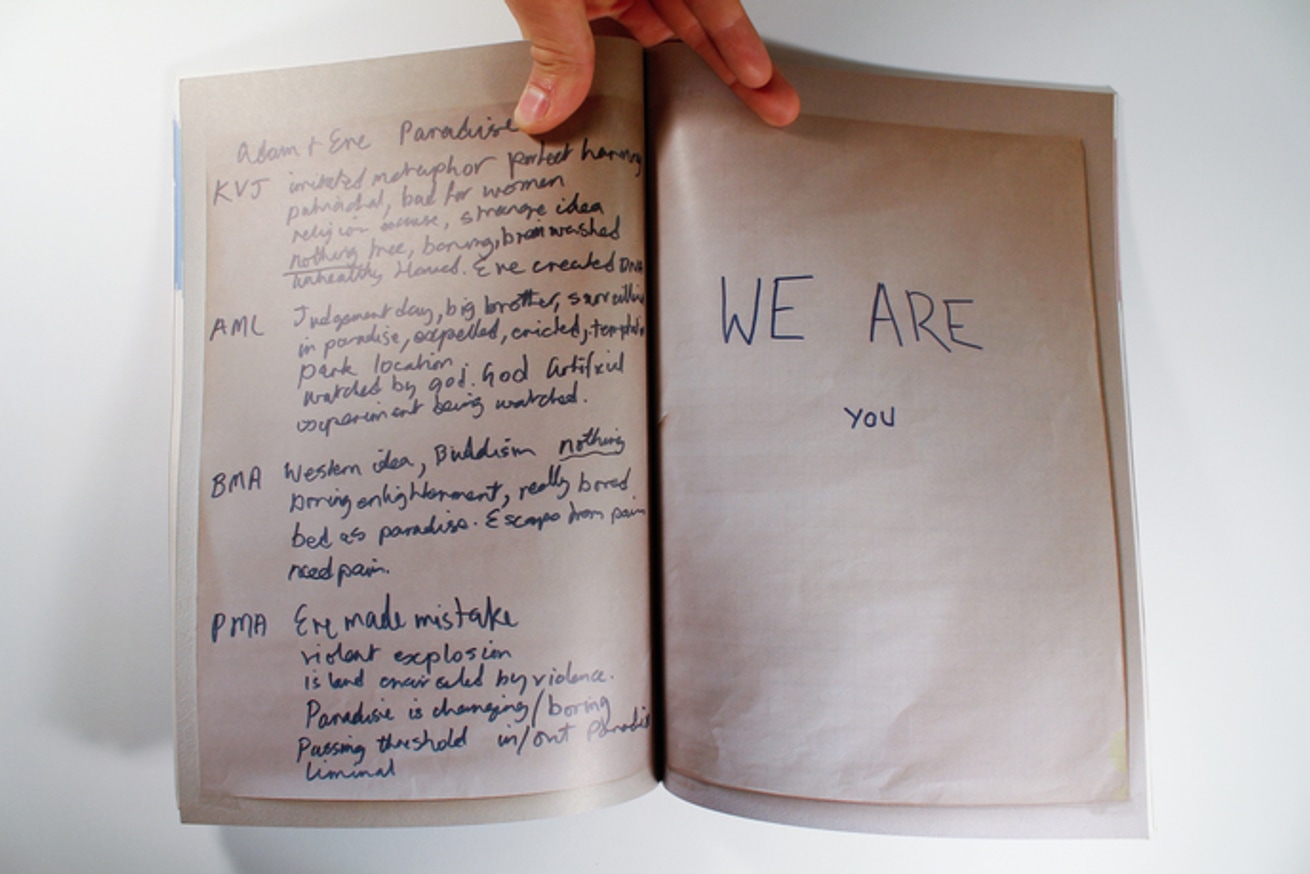 Adam + Eve Paradise
KVJ irritated metaphor perfect harmony
patriarchal, bad for women
religion excuse, strange idea
nothing free, boring, brainwashed
unhealthy. Eve created DNA
AML Judgement day, big brother,
in paradise, expelled, evicted,
park location.
watched by god. God Artificial
experiment being watched.
BMA Western idea, Buddism nothing
Boring enlightenment, really bored
bed as paradise. Escape from pain
need pain.
PMA Eve made mistake
violent explosion
island encircled by violence.
Paradise is changing/boring
Passing threshold in/out Paradise
liminal
WE ARE
YOU